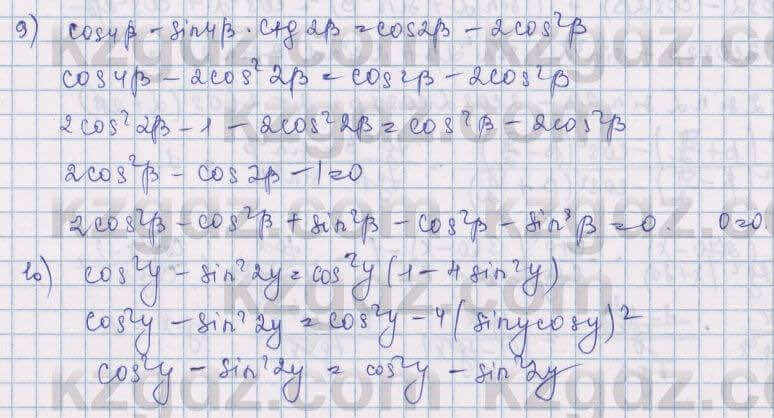 9) cos4β - sin4β · ctg 2β = cos2β - 2cos²β
cos4β - 2cos² 2β = cos2β - 2cos²β
2cos² 2β - 1 - 2cos² 2β = cos²β - 2cos²β
2cos²β - cos2β - 1 = 0
2cos²β - cos²β + sin²β - cos²β - sin²β = 0. 0=0.
10) cos²y - sin² 2y = cos²y (1 - 4 sin²y)
cos²y - sin² 2y = cos²y - 4 (sin y cos y)²
cos²y - sin² 2y = cos²y - sin² 2y
kzgdz.com